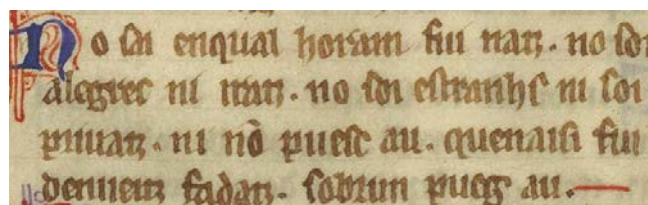 No sai enqual horam fui natz. no soi
alegres ni iratz. no soi estranhs ni soi
priuatz. ni nō puesc au. quenaisi fui
deniueitz fadatz. sobrun pueg au.